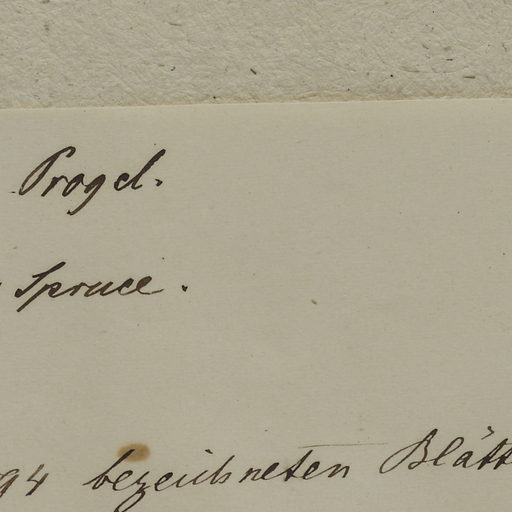 Progel.
Spruce.
94 bezeichneten Blätt